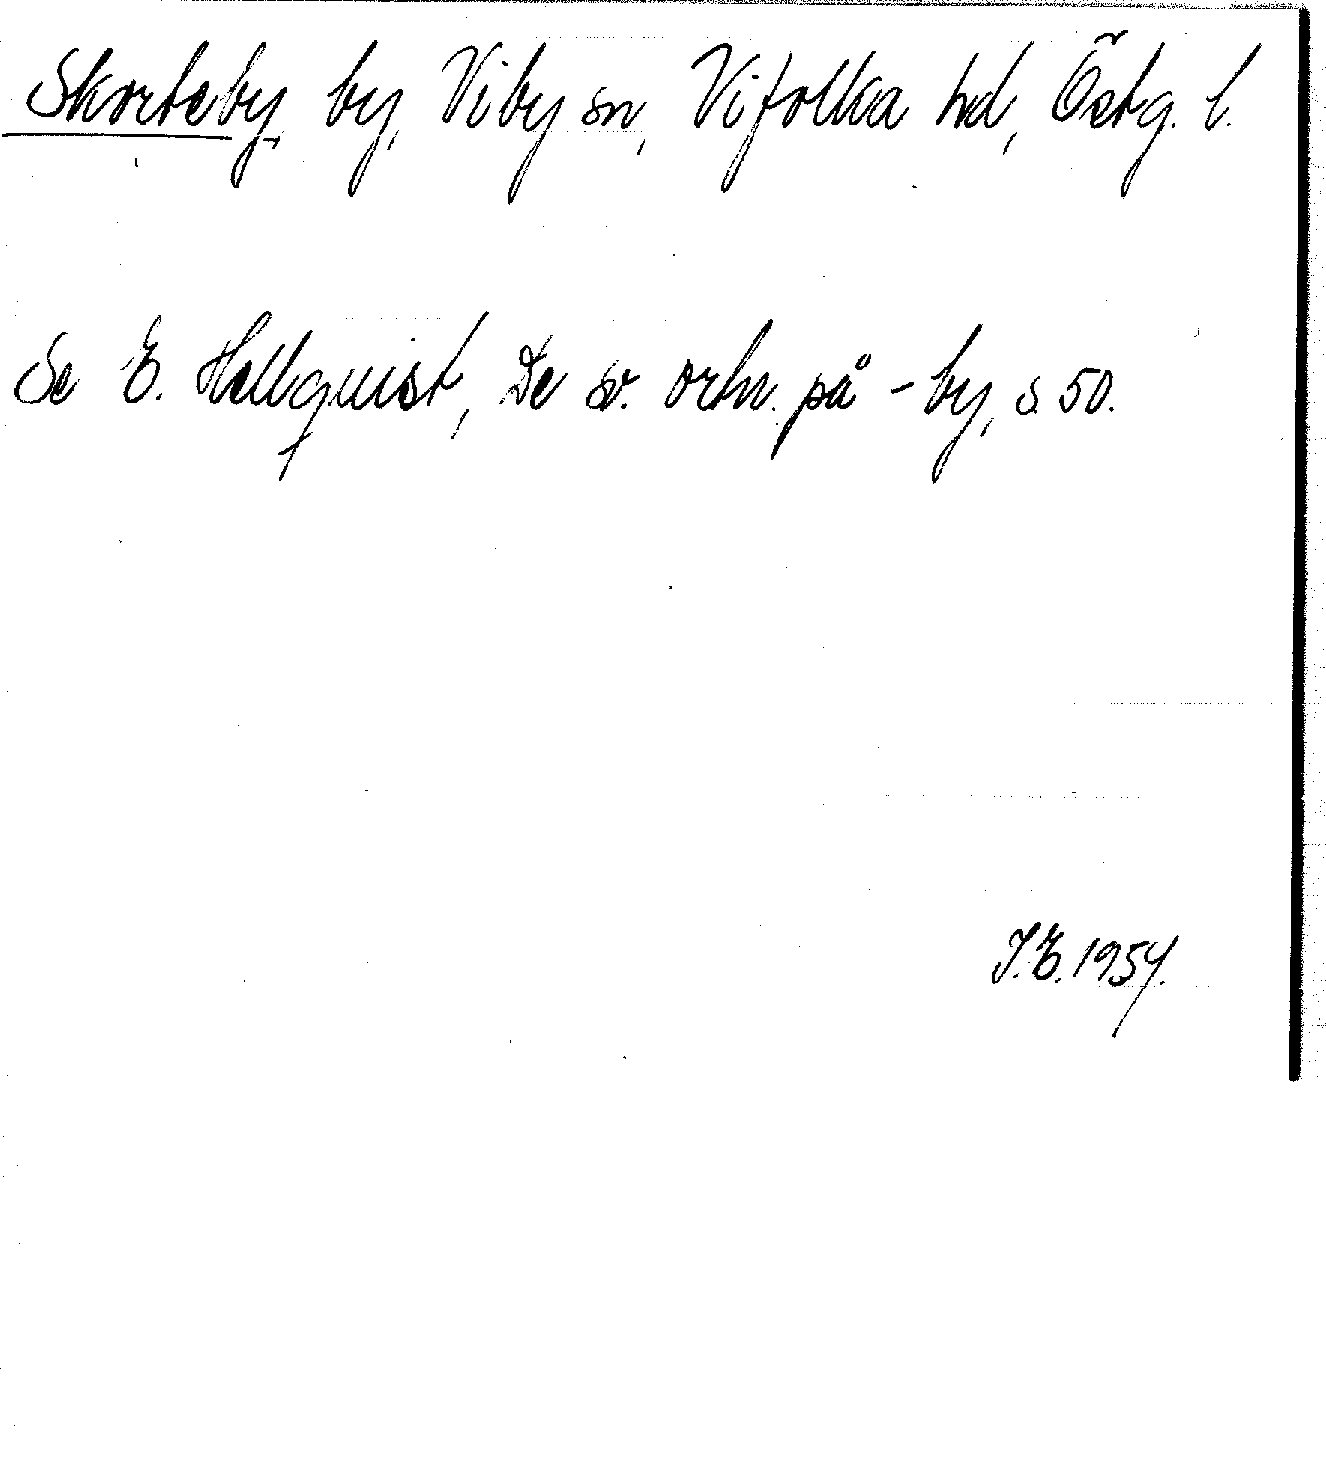 Skorteby, by, Viby sn, Vifolka hd, Östg. l.
Se E. Hellquist, De sv. ortn. på -by, s. 50.
I. E. 1954.